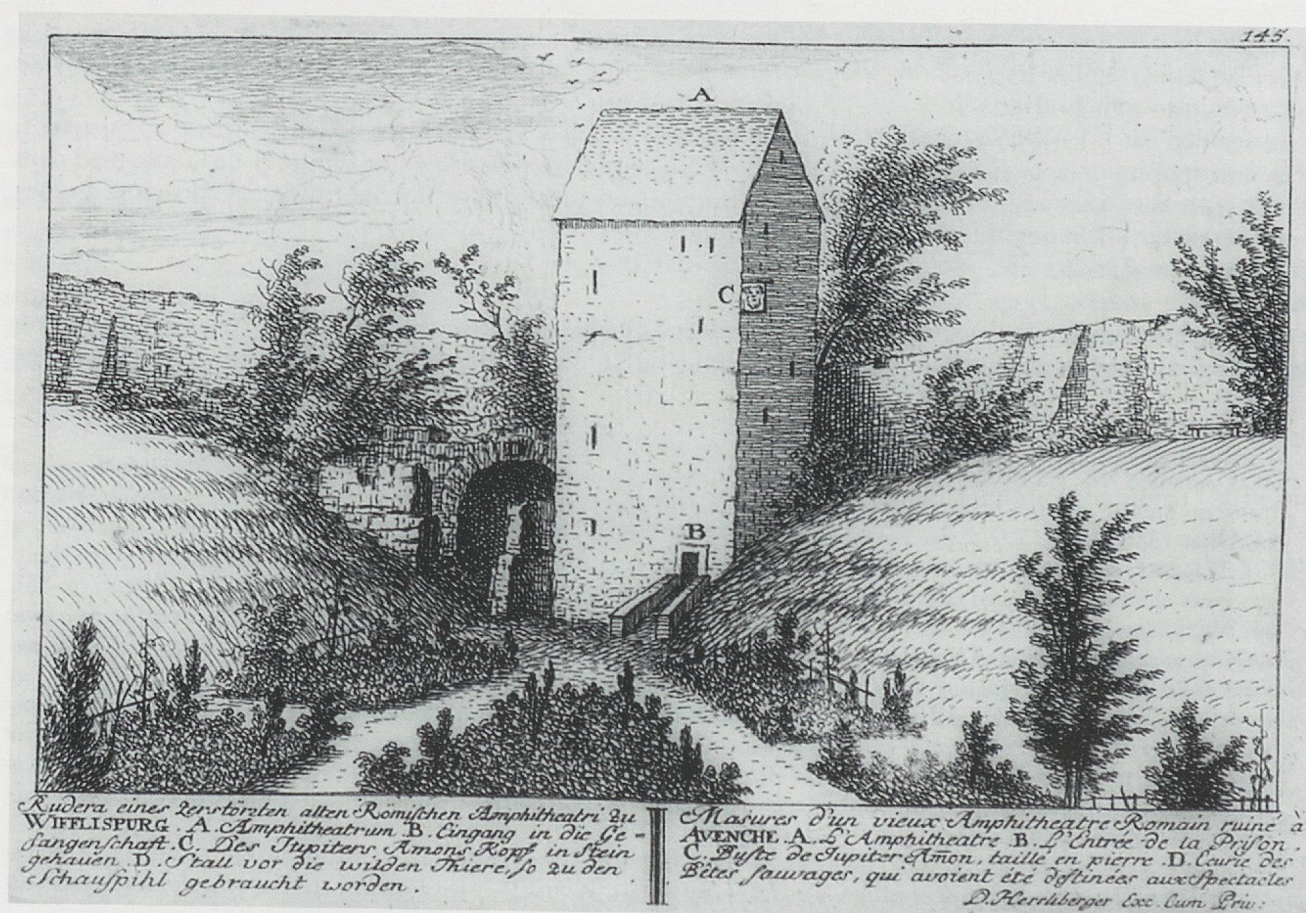 145.
A
C
B
Rudera eines zerstörten alten Römischen Amphitheatri zu
WIFFLISPURG. A. Amphitheatrum B. Eingang in die Ge-
fangenschaft. C. Des Jupiters Amons Kopf in Stein
gehauen. D. Stall vor die wilden Thiere, so zu den
Schauspihl gebraucht worden.
Masures d'un vieux Amphitheatre Romain ruiné à
AVENCHE. A. L'Amphitheatre. B. L'Entrée de la Prison.
C. Buste de Jupiter Amon, taillé en pierre. D. Ecurie des
Bêtes sauvages, qui avoient été destinées aux Spectacles
D. Herrliberger Exc. Cum Priv: